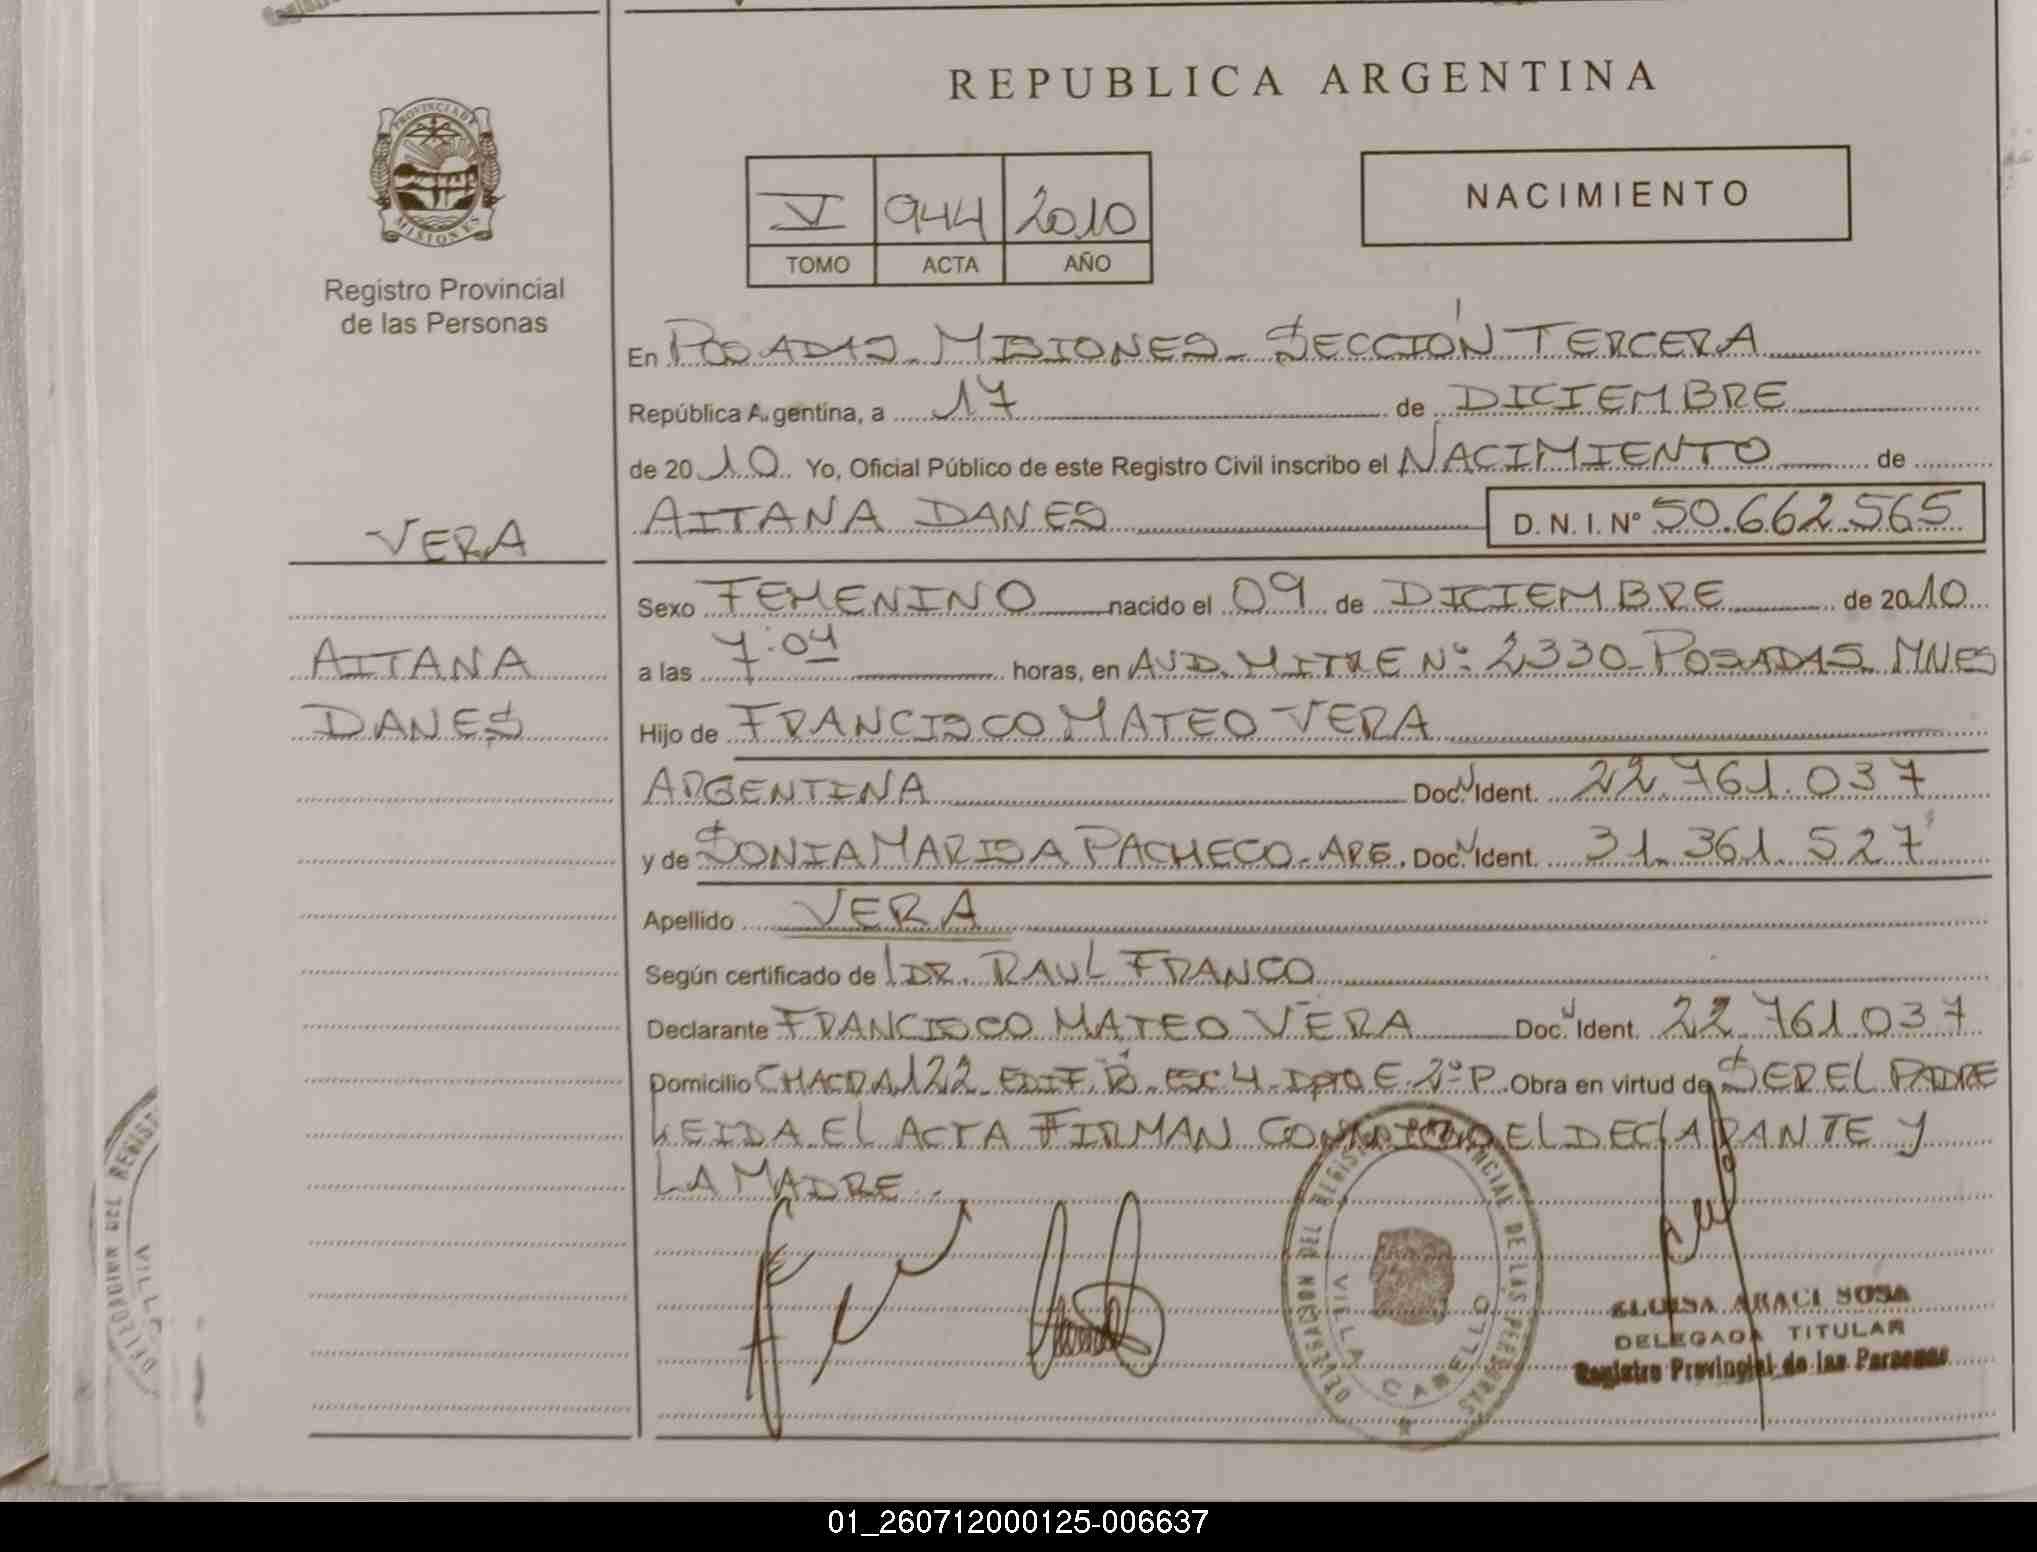 REPUBLICA ARGENTINA
PROVINCIA DE
MISIONES
Registro Provincial
de las Personas
V 944 2010
TOMO ACTA AÑO
NACIMIENTO
En POSADAS - MISIONES - SECCIÓN TERCERA
República Argentina, a 17 de DICIEMBRE
de 2010 Yo, Oficial Público de este Registro Civil inscribo el NACIMIENTO de
AITANA DANES D. N. I. Nº 50.662.565
VERA
AITANA
DANES
Sexo FEMENINO nacido el 09 de DICIEMBRE de 2010
a las 7:04 horas, en AVD. MITRE Nº: 2330 - POSADAS - MNES
Hijo de FRANCISCO MATEO VERA
ARGENTINA Doc. Ident. 22.761.037
y de SONIA MARISA PACHECO - ARG. Doc. Ident. 31.361.527
Apellido VERA
Según certificado de DR. RAUL FRANCO
Declarante FRANCISCO MATEO VERA Doc. Ident. 22.761.037
Domicilio CHACRA 122 EDIF. B - ESC 4 - DPTO E - 2º P. Obra en virtud de SER EL PADRE
LEIDA EL ACTA FIRMAN CONMIGO EL DECLARANTE Y
LA MADRE.
DELEGACION DEL REGISTRO PROVINCIAL DE LAS PERSONAS
VILLA CABELLO
ELOISA ARACI SOSA
DELEGADA TITULAR
Registro Provincial de las Personas
DELEGACION DEL REGIST
VILL
01_260712000125-006637